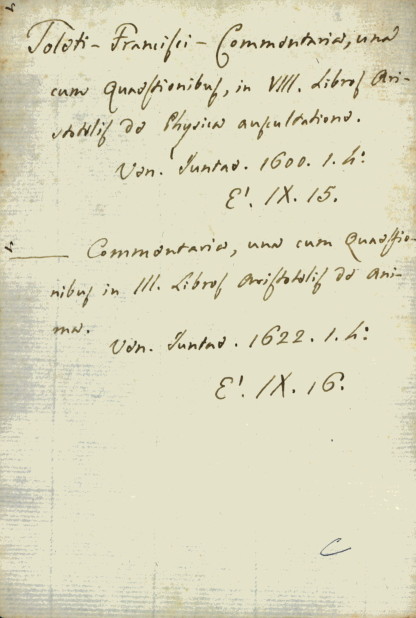 Toleti - Francisci - Commentaria, una
cum Quaestionibus, in VIII. Libros Ari-
stotelis de Physica auscultatione.
Ven. Juntas. 1600. 1. 4º
E'. IX. 15.
Commentaria, una cum Quaestio-
nibus in III. Libros Aristotelis de Ani-
ma.
Ven. Juntas. 1622. 1. 4º
E'. IX. 16.
C